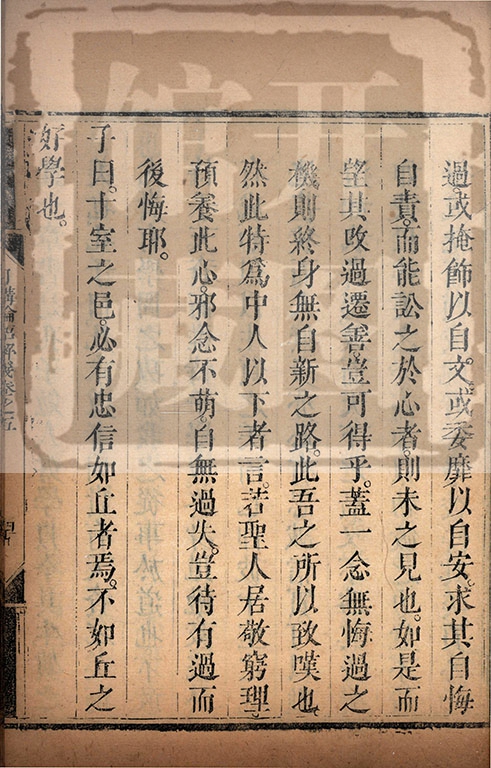 過或掩飾以自文。或委靡以自安。求其自悔
自責。而能訟之於心者。則未之見也。如是而
望其改過遷善。豈可得乎。蓋一念無悔過之
機。則終身無自新之路。此吾之所以致嘆也。
然此特爲中人以下者言。若聖人居敬窮理。
預養此心。邪念不萌。自無過失。豈待有過而
後悔耶。
子曰。十室之邑。必有忠信如丘者焉。不如丘之
好學也。